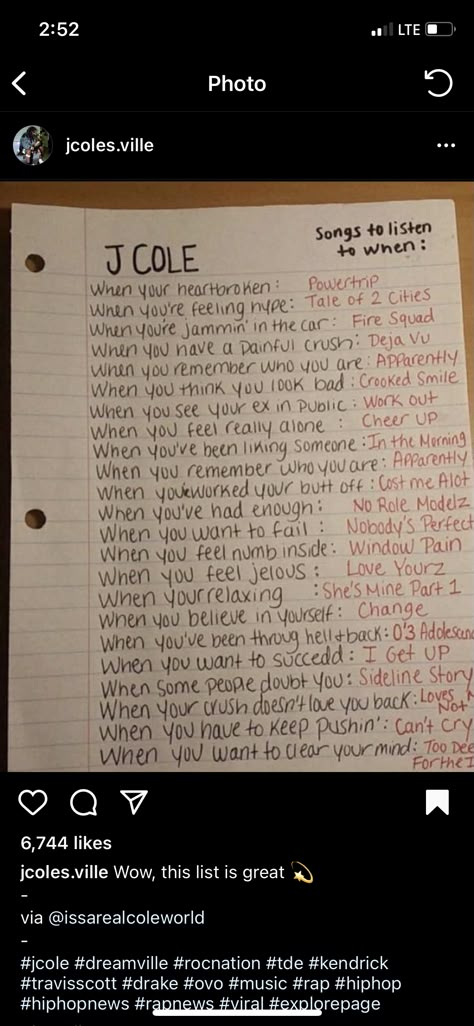 2:52
LTE
Photo
jcoles.ville
J COLE
Songs to listen
to when:
When your heartbroken: Powertrip
When you're feeling hype: Tale of 2 Cities
When you're jammin' in the car: Fire Squad
When you have a painful crush: Deja Vu
When you remember who you are: Apparently
When you think you look bad: Crooked Smile
When you see your ex in public: Work out
When you feel really alone: Cheer up
When you've been liking someone: In the Morning
When you remember who you are: Apparently
When you worked your butt off: Cost me Alot
When you've had enough: No Role Modelz
When you want to fail: Nobody's Perfect
When you feel numb inside: Window Pain
When you feel jelous: Love Yourz
When your relaxing: She's Mine Part 1
When you believe in yourself: Change
When you've been throug hell & back: 0'3 Adolescenc
When you want to succedd: I Get UP
When some people doubt you: Sideline Story
When your crush doesn't love you back: Loves
Not
When you have to keep pushin': Can't Cry
When you want to clear your mind: Too Dee
For the I
6,744 likes
jcoles.ville Wow, this list is great 💫
-
via @issarealcoleworld
-
#jcole #dreamville #rocnation #tde #kendrick
#travisscott #drake #ovo #music #rap #hiphop
#hiphopnews #rapnews #viral #explorepage